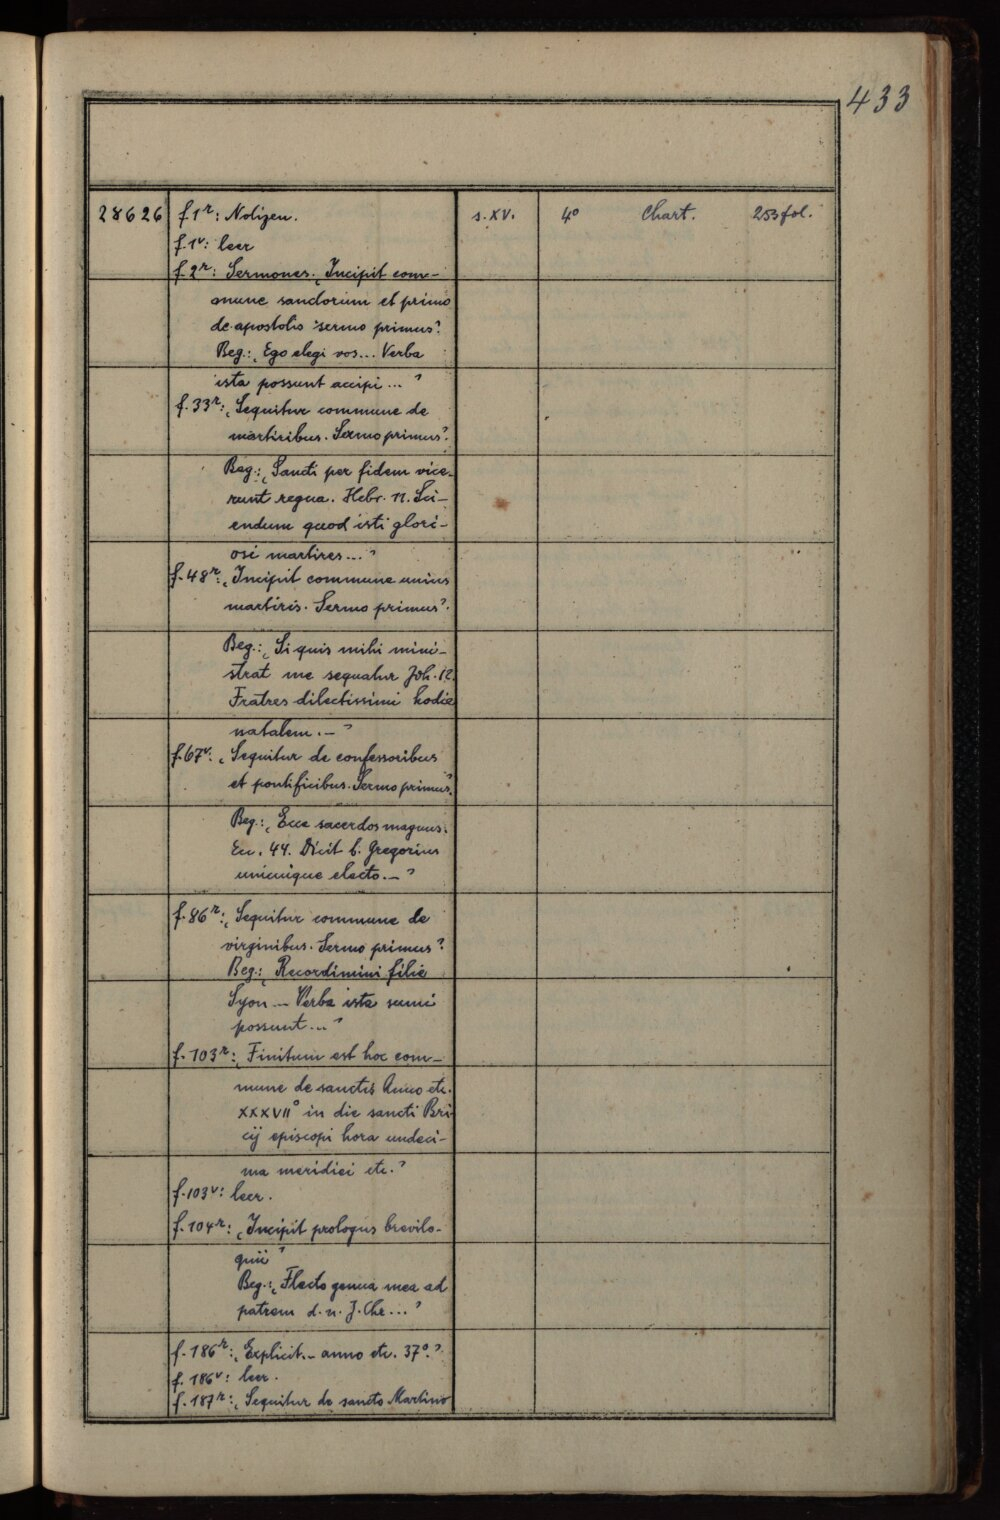 433
28626 f. 1r: Notizen. s. XV. 4° Chart. 253 fol.
f. 1v: leer
f. 2r: Sermones. „Incipit com-
mune sanctorum et primo
de apostolis sermo primus“.
Beg.: „Ego elegi vos... Verba
ista possunt accipi ...“
f. 33r: „Sequitur commune de
martiribus. Sermo primus“.
Beg.: „Sancti per fidem vice-
runt regna. Hebr. 11. Sci-
endum quod isti glori-
osi martires...“
f. 48r: „Incipit commune unius
martiris. Sermo primus“.
Beg.: „Si quis mihi mini-
strat me sequatur Joh. 12.
Fratres dilectissimi hodie
natalem. –“
f. 67v: „Sequitur de confessoribus
et pontificibus. Sermo primus“.
Beg.: „Ecce sacerdos magnus.
Ecc. 44. Dicit b. Gregorius
unicuique electo. –“
f. 86r: „Sequitur commune de
virginibus. Sermo primus“.
Beg.: „Recordimini filie
Syon – Verba ista sumi
possunt...“
f. 103r: „Finitum est hoc com-
mune de sanctis Anno etc.
XXXVII° in die sancti Bri-
cij episcopi hora undeci-
ma meridiei etc.“
f. 103v: leer.
f. 104r: „Incipit prologus brevilo-
quii“
Beg.: „Flecto genua mea ad
patrem d. n. J. Chr...“
f. 186r: „Explicit – anno etc. 37°.“
f. 186v: leer.
f. 187r: „Sequitur de sancto Martino